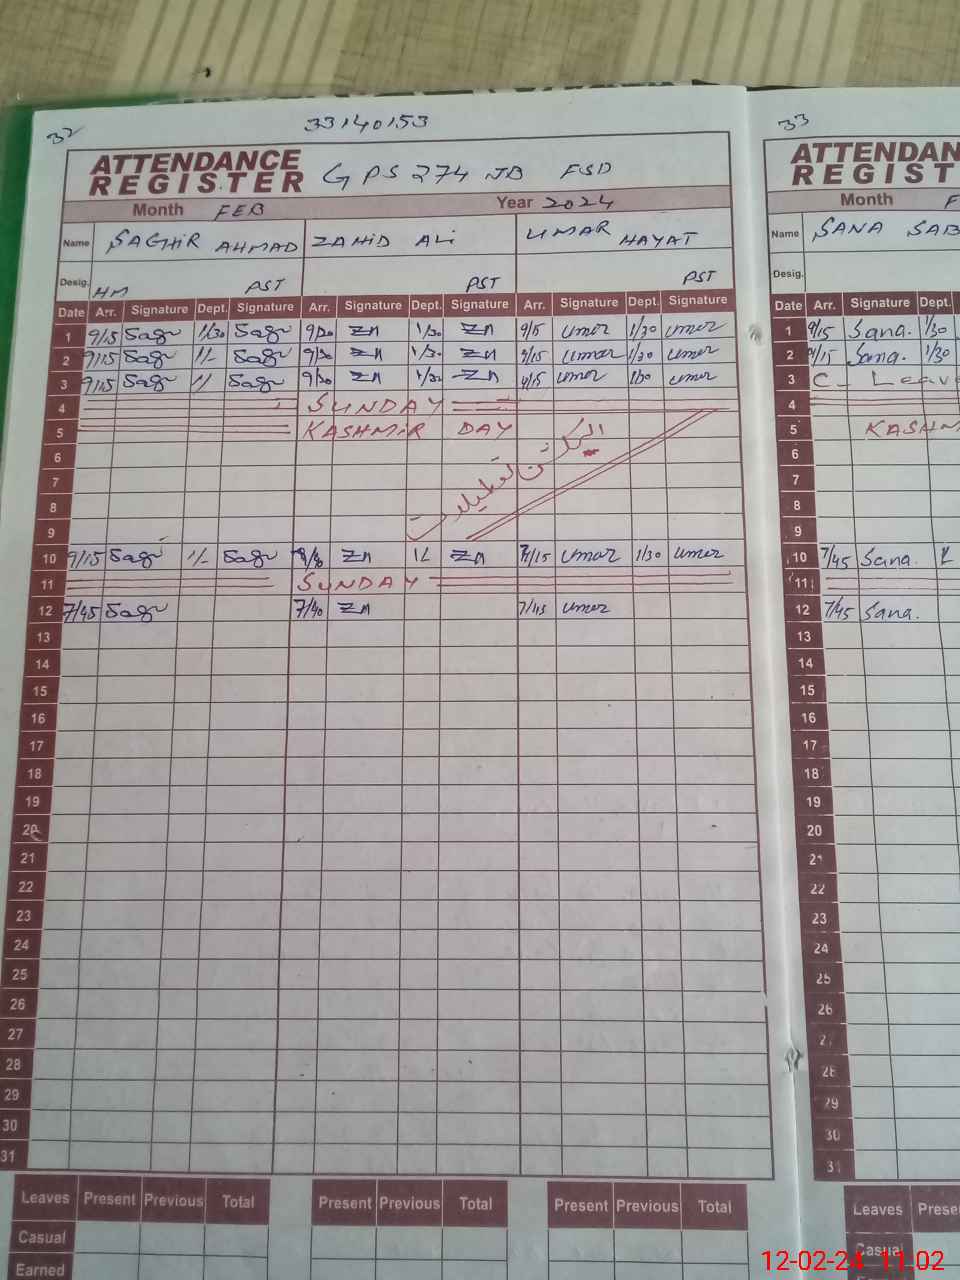 32 33140153 33
ATTENDANCE REGISTER GPS 274 JB FSD ATTENDAN REGIST
Month FEB Year 2024 Month F
Name SAGHIR AHMAD ZAHID ALI UMAR HAYAT Name SANA SAB
Desig. HM PST PST PST Desig.
Date Arr. Signature Dept. Signature Arr. Signature Dept. Signature Arr. Signature Dept. Signature Date Arr. Signature Dept.
1 9/15 Sagr 1/30 Sagr 9/20 ZA 1/30 ZA 9/15 umar 1/30 umar 1 9/15 Sana. 1/30
2 9/15 Sagr 1/- Sagr 9/20 ZA 1/30 ZA 9/15 umar 1/30 umar 2 9/15 Sana. 1/30
3 9/15 Sagr 1/ Sagr 9/20 ZA 1/30 ZA 9/15 umar 1/30 umar 3 C- Leave
4 SUNDAY 4
5 KASHMIR DAY 5 KASHM
6 6
الیکشن تعطیلات
7 7
8 8
9 9
10 9/15 Sagr 1/- Sagr ZA 1/ ZA umar 1/30 umar 10 7/45 Sana.
11 SUNDAY 11
12 7/45 Sagr 7/40 ZA 7/45 umar 12 7/45 Sana.
13 13
14 14
15 15
16 16
17 17
18 18
19 19
20 20
21 21
22 22
23 23
24 24
25 25
26 26
27 27
28 28
29 29
30 30
31 31
Leaves Present Previous Total Present Previous Total Present Previous Total Leaves Prese
Casual Casual
Earned
12-02-24 11.02